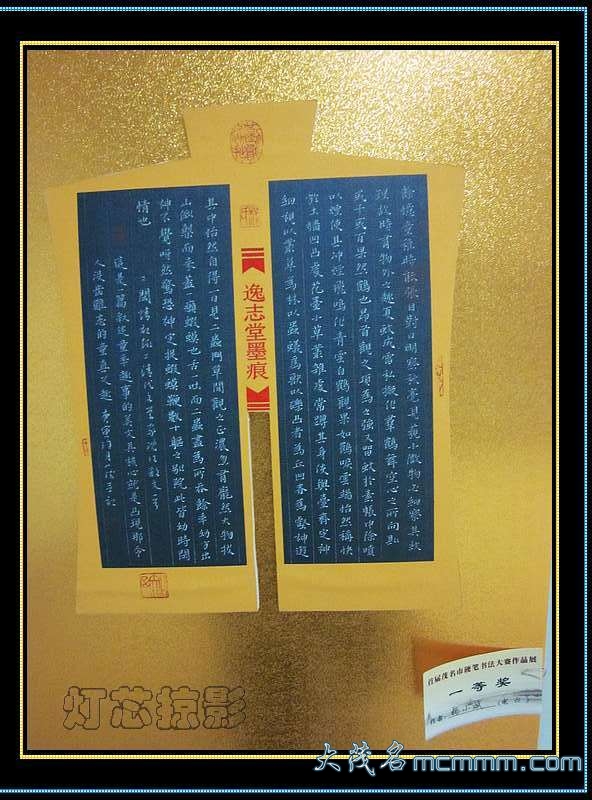 餘憶童稚時能張目對日明察秋毫見藐小微物必細察其紋
理故時有物外之趣夏蚊成雷私擬作群鶴舞空心之所向則
或千或百果然鶴也昂首觀之項為之强又留蚊於素帳中徐噴
以煙使其冲煙飛鳴作青雲白鶴觀果如鶴唳雲端怡然稱快
於土牆凹凸處花臺小草叢雜處常蹲其身使與臺齊定神
細視以叢草為林以蟲蟻為獸以礫凸者為丘凹者為壑神遊
逸志堂墨痕
其中怡然自得一日見二蟲鬥草間觀之正濃忽有龐然大物拔
山倒樹而來蓋一蝦蟆也舌一吐而二蟲盡為所吞餘年幼方出
神不覺呀然驚恐神定捉蝦蟆鞭數十驅之別院此皆幼時閒
情也
閒情記趣 清代文學家沈復文
這是一篇叙述童年趣事的美文其核心就是凸現那令
人没齒難忘的童真
首届茂名市硬笔书法大赛作品展
一等奖
作者：杨小
灯芯掠影
大茂名mcmmm.com